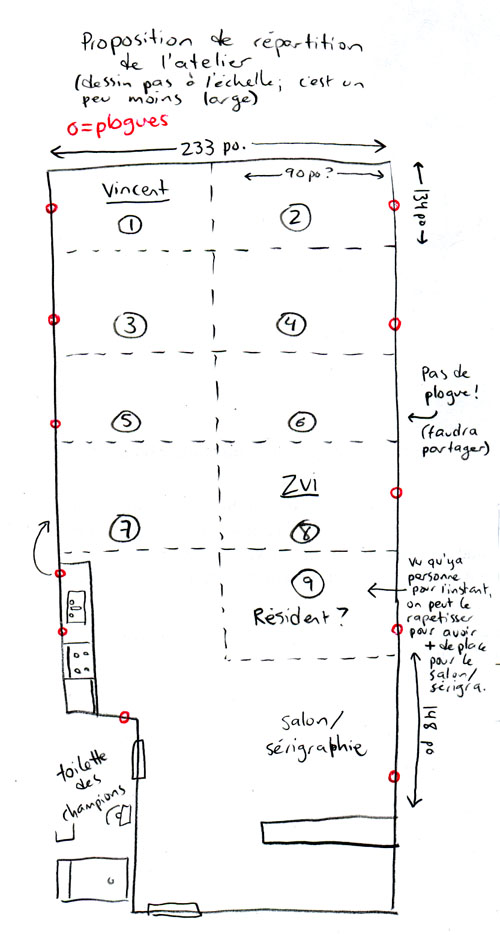 Proposition de répartition
de l'atelier
(dessin pas à l'échelle; c'est un
peu moins large)
o=plogues
233 po.
90 po?
134 po
Vincent
1
2
3
4
5
6
Pas de
plogue!
(faudra
partager)
7
Zvi
8
9
Résident?
vu qu'ya
personne
pour l'instant,
on peut le
rapetisser
pour avoir
+ de place
pour le
salon/
sérigra.
148 po
salon/
sérigraphie
toilette
des
champions